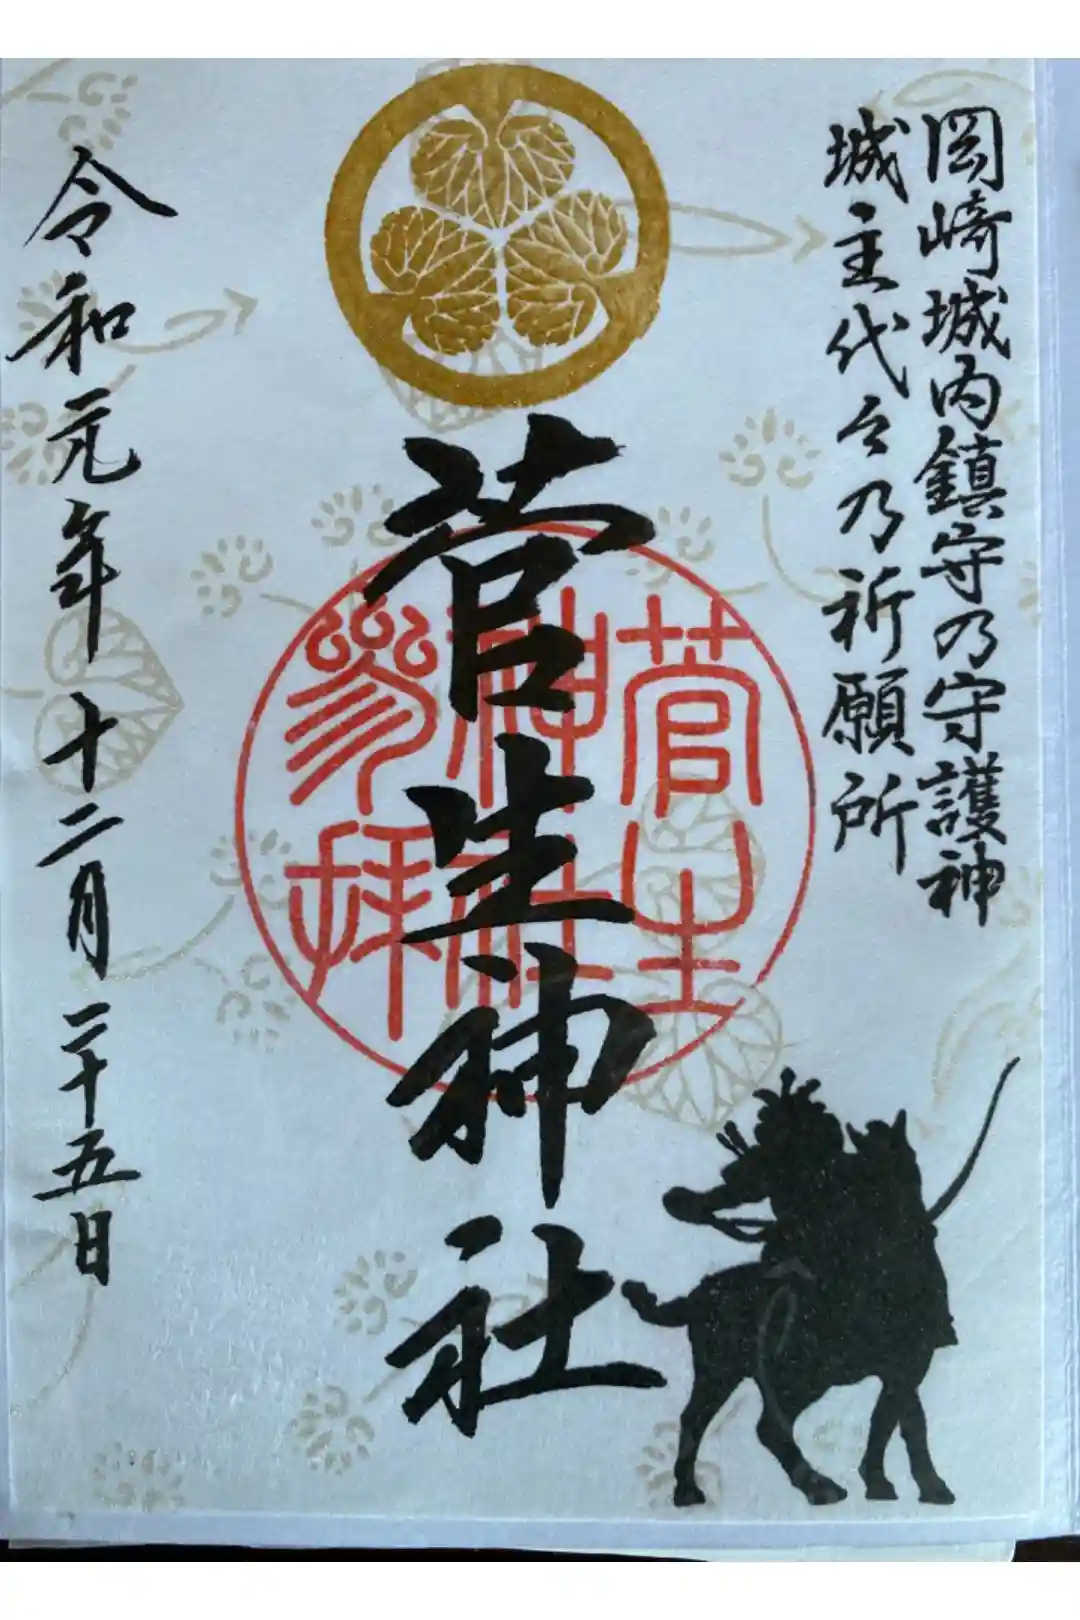 岡崎城内鎮守乃守護神
城主代々乃祈願所
菅生神社
菅生
神社
参拝
令和元年十二月二十五日